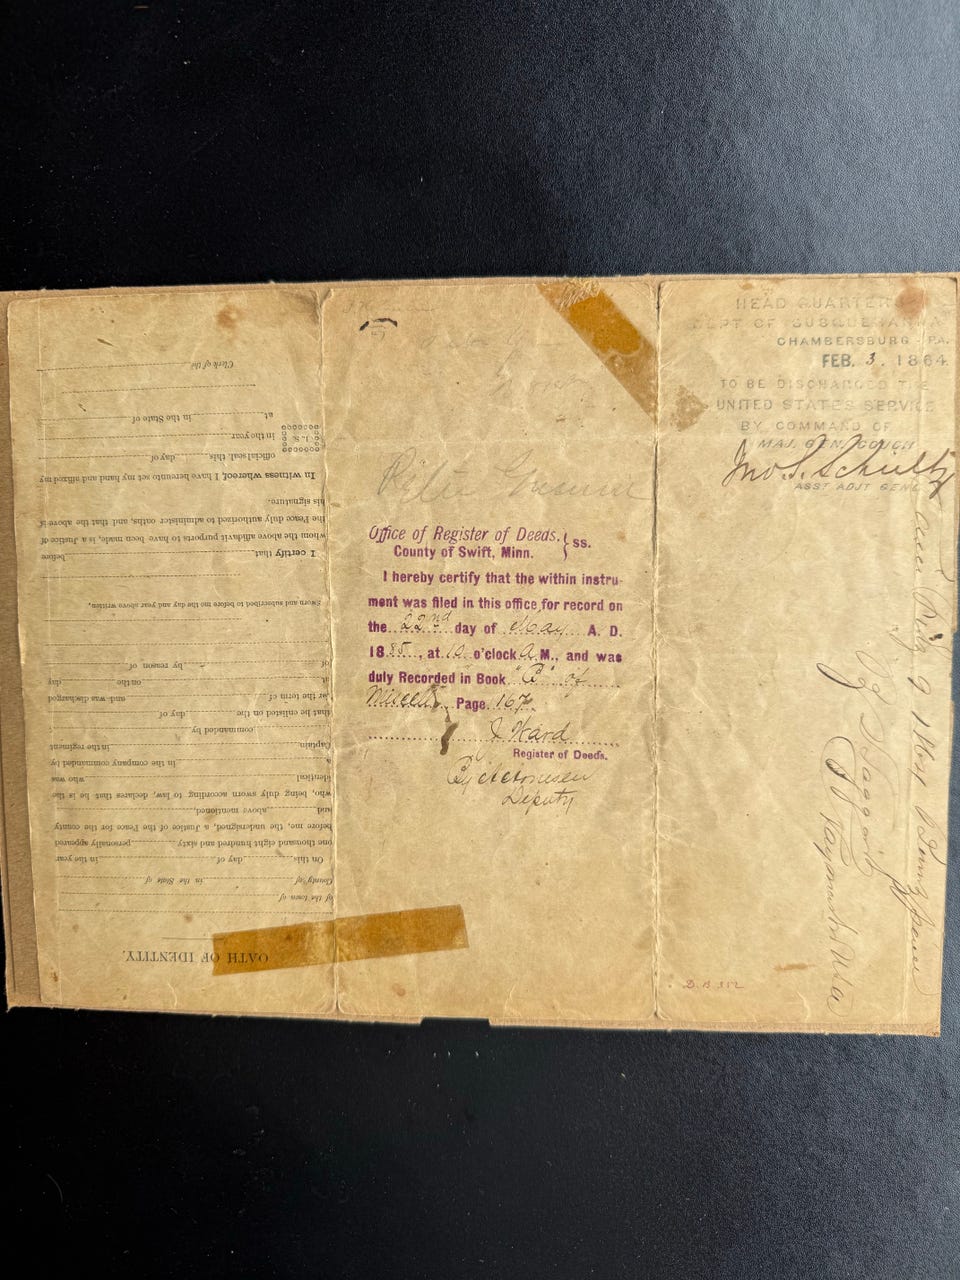 OATH OF IDENTITY.
of the town of
County of in the State of
On this day of in the year
one thousand eight hundred and sixty personally appeared
before me, the undersigned, a Justice of the Peace for the county
and above mentioned,
who, being duly sworn according to law, declares that he is the
identical who was
a in the company commanded by
Captain in the regiment
commanded by
that he enlisted on the day of
for the term of and was discharged
at on the day
of by reason of
Sworn and subscribed to before me the day and year above written,
I certify that before
whom the above affidavit purports to have been made, is a Justice of
the Peace duly authorized to administer oaths, and that the above is
his signature.
In witness whereof, I have hereunto set my hand and affixed my
official seal, this day of
[L.S.] in the year
at in the State of
Clerk of the
Office of Register of Deeds, } ss.
County of Swift, Minn.
I hereby certify that the within instru-
ment was filed in this office for record on
the 22nd day of May A. D.
1885, at 10 o'clock A M., and was
duly Recorded in Book "B" of
Page 167
J Ward
Register of Deeds.
By
Deputy
HEAD QUARTERS
DEPT OF SUSQUEHANNA
CHAMBERSBURG PA.
FEB. 3. 1864
TO BE DISCHARGED THE
UNITED STATES SERVICE
BY COMMAND OF
MAJ. GEN. COUCH
Jno S. Schultz
ASST ADJT GENL
Paymaster USA
D.B. 352